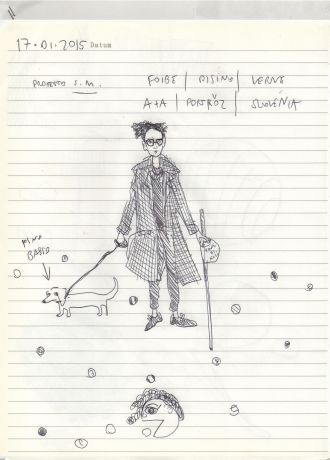 17.01.2015 Datum
PROGETTO S.M.
FOIBE | PISINO | VERNE
A+A | PORTOROŽ | SLOVENIA
PINO